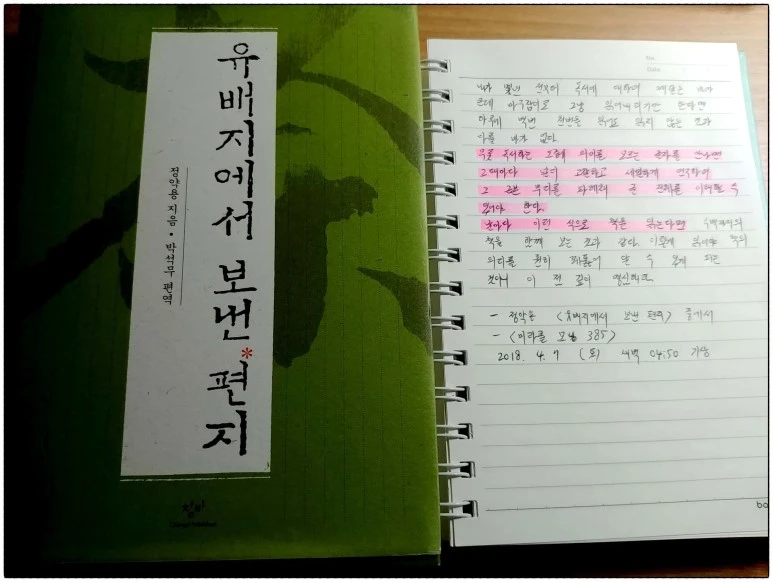 유배지에서 보낸 편지
정약용 지음 · 박석무 편역
창비
내가 몇년 전부터 독서에 대하여 깨달은 바가
큰데 마구잡이로 그냥 읽어내리기만 한다면
하루에 백번 천번을 읽어도 읽지 않는 것과
다를 바가 없다.
무릇 독서하는 도중에 의미를 모르는 글자를 만나면
그때마다 널리 고찰하고 세밀하게 연구하여
그 근본 뿌리를 파헤쳐 글 전체를 이해할 수
있어야 한다.
날마다 이런 식으로 책을 읽는다면 수백가지의
책을 함께 보는 것과 같다. 이렇게 읽어야 책의
의리를 훤히 꿰뚫어 알 수 있게 되는
것이니 이 점 깊이 명심해라.
- 정약용 <유배지에서 보낸 편지> 중에서
- <미라클 모닝 385>
2018. 4. 7 (토) 새벽 04:50 기상
No.
Date
bo